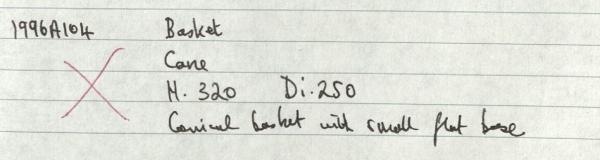 1996A104 Basket
Cane
H. 320 Di. 250
Conical basket with small flat base